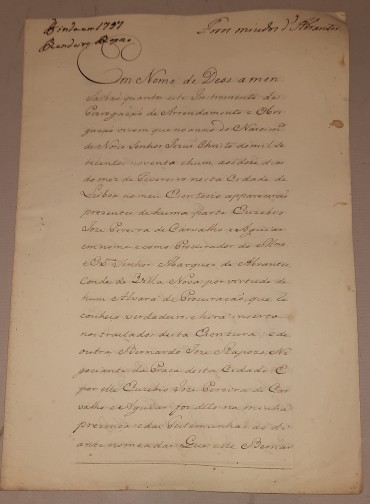 Finda em 1797
Foros miudos d'Abrantes
Em Nome de Deos amen
Saibaõ quantos este Instromento de
Porrogação de Arrendamento e Obri
gação virem que no anno do Nascimen
de Nosso Senhor Jezus Christo de mil se
tecentos noventa e hum aos doze dias
do mez de Fevereiro nesta Cidade de
Lisboa no meu Escritorio appareceraõ
prezentes de huma parte Euzebio
Joze Pereira de Carvalho e Aguiar
em nome e como Procurador do Illmo
e Ex Senhor Marquez de Abrantes
Conde de Villa Nova por virtude de
hum Alvará de Procuração, que Eu
conheço verdadeiro, e hirá inserto
nos traslados desta Escritura; e de
outra Bernardo Joze Rapozo, Ne
gociante da Praça desta Cidade E
por elle Euzebio Joze Pereira de Car
valho e Aguiar foi dito na minha
prezença e das Testemunhas ao di
ante nomeadas Que elle Bernar